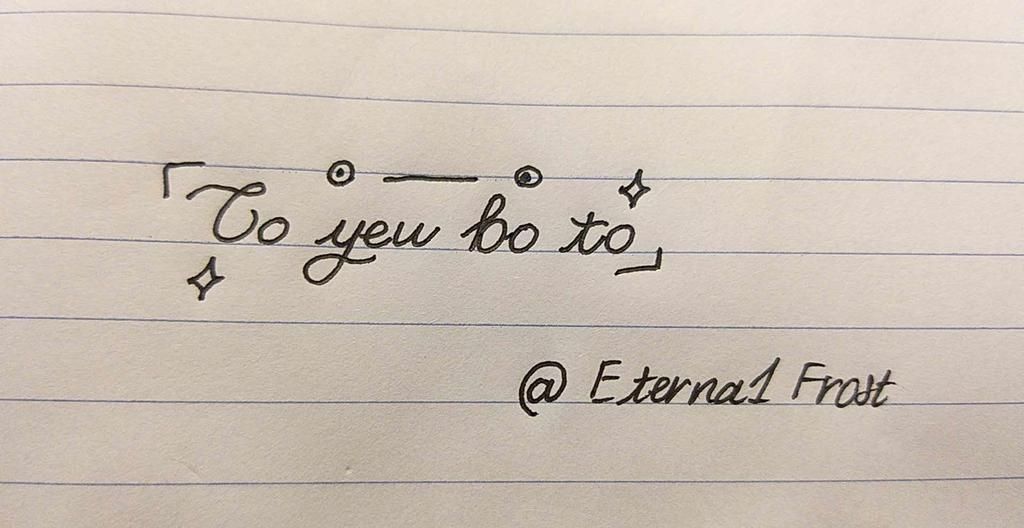 「To yew bo to」
@ Eterna1 Frost